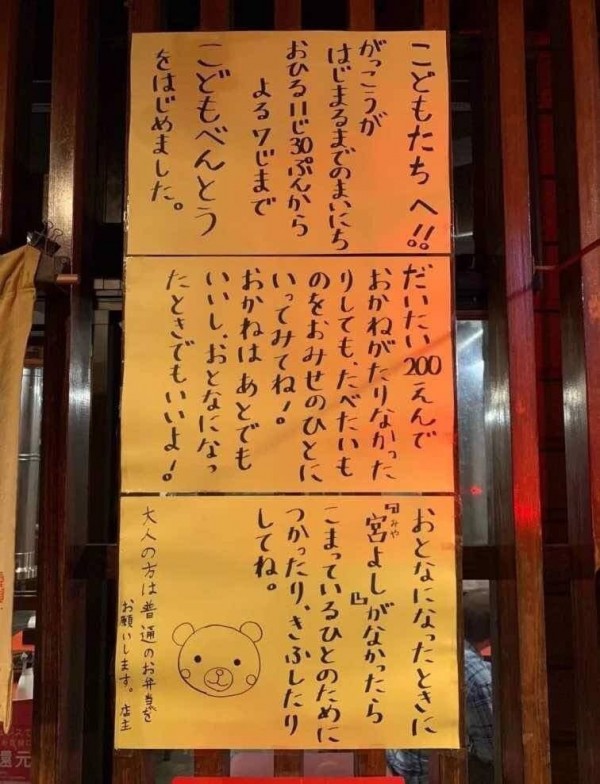 こどもたちへ!!
がっこうが
はじまるまでのまいにち
おひる11じ30ぷんから
よる7じまで
こどもべんとう
をはじめました。
だいたい200えんで
おかねがたりなかった
りしても、たべたいも
のをおみせのひとに
いってみてね!
おかねはあとでも
いいし、おとなになっ
たときでもいいよ!
おとなになったときに
『宮よし』がなかったら
みや
こまっているひとのために
つかったり、きふしたり
してね。
大人の方は普通のお弁当を
お願いします。店主
還元